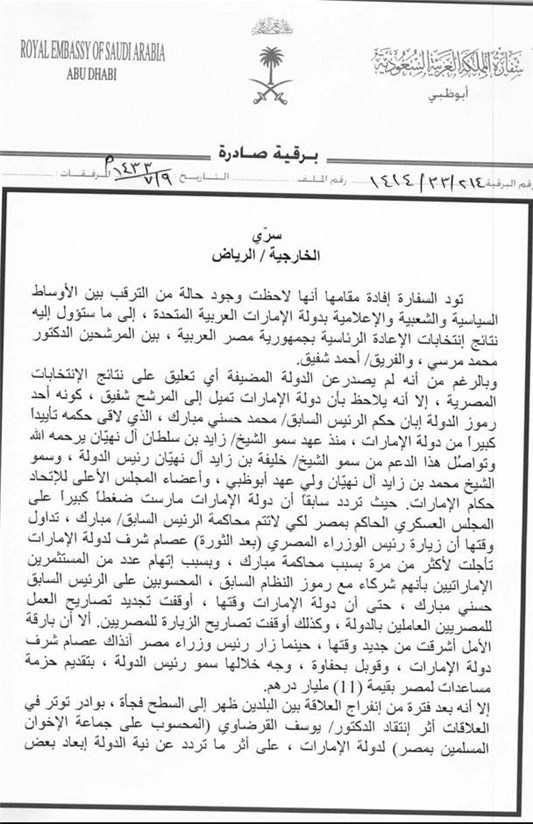 ROYAL EMBASSY OF SAUDI ARABIA
ABU DHABI
سفارة المملكة العربية السعودية
أبوظبي
برقية صادرة
رقم البرقية ١٤١٤/٣٣/٢١٤ رقم الملف التاريخ ٧/٩/١٤٣٣ المرفقات
سرّي
الخارجية / الرياض
تود السفارة إفادة مقامها أنها لاحظت وجود حالة من الترقب بين الأوساط
السياسية والشعبية والإعلامية بدولة الإمارات العربية المتحدة ، إلى ما ستؤول إليه
نتائج إنتخابات الإعادة الرئاسية بجمهورية مصر العربية ، بين المرشحين الدكتور
محمد مرسي ، والفريق/ أحمد شفيق.
وبالرغم من أنه لم يصدرعن الدولة المضيفة أي تعليق على نتائج الإنتخابات
المصرية ، إلا أنه يلاحظ بأن دولة الإمارات تميل إلى المرشح شفيق ، كونه أحد
رموز الدولة إبان حكم الرئيس السابق/ محمد حسني مبارك ، الذي لاقى حكمه تأييداً
كبيراً من دولة الإمارات ، منذ عهد سمو الشيخ/ زايد بن سلطان آل نهيّان يرحمه الله
وتواصُل هذا الدعم من سمو الشيخ/ خليفة بن زايد آل نهيّان رئيس الدولة ، وسمو
الشيخ محمد بن زايد آل نهيّان ولي عهد أبوظبي ، وأعضاء المجلس الأعلى للإتحاد
حكام الإمارات. حيث تردد سابقاً أن دولة الإمارات مارست ضغطاً كبيراً على
المجلس العسكري الحاكم بمصر لكي لاتتم محاكمة الرئيس السابق/ مبارك ، تداول
وقتها أن زيارة رئيس الوزراء المصري (بعد الثورة) عصام شرف لدولة الإمارات
تأجلت لأكثر من مرة بسبب محاكمة مبارك ، وبسبب إتهام عدد من المستثمرين
الإماراتيين بأنهم شركاء مع رموز النظام السابق ، المحسوبين على الرئيس السابق
حسني مبارك ، حتى أن دولة الإمارات وقتها ، أوقفت تجديد تصاريح العمل
للمصريين العاملين بالدولة ، وكذلك أوقفت تصاريح الزيارة للمصريين. ألا أن بارقة
الأمل أشرقت من جديد وقتها ، حينما زار رئيس وزراء مصر آنذاك عصام شرف
دولة الإمارات ، وقوبل بحفاوة ، وجه خلالها سمو رئيس الدولة ، بتقديم حزمة
مساعدات لمصر بقيمة (11) مليار درهم.
إلا أنه بعد فترة من إنفراج العلاقة بين البلدين ظهر إلى السطح فجأة ، بوادر توتر في
العلاقات أثر إنتقاد الدكتور/ يوسف القرضاوي (المحسوب على جماعة الإخوان
المسلمين بمصر) لدولة الإمارات ، على أثر ما تردد عن نية الدولة إبعاد بعض